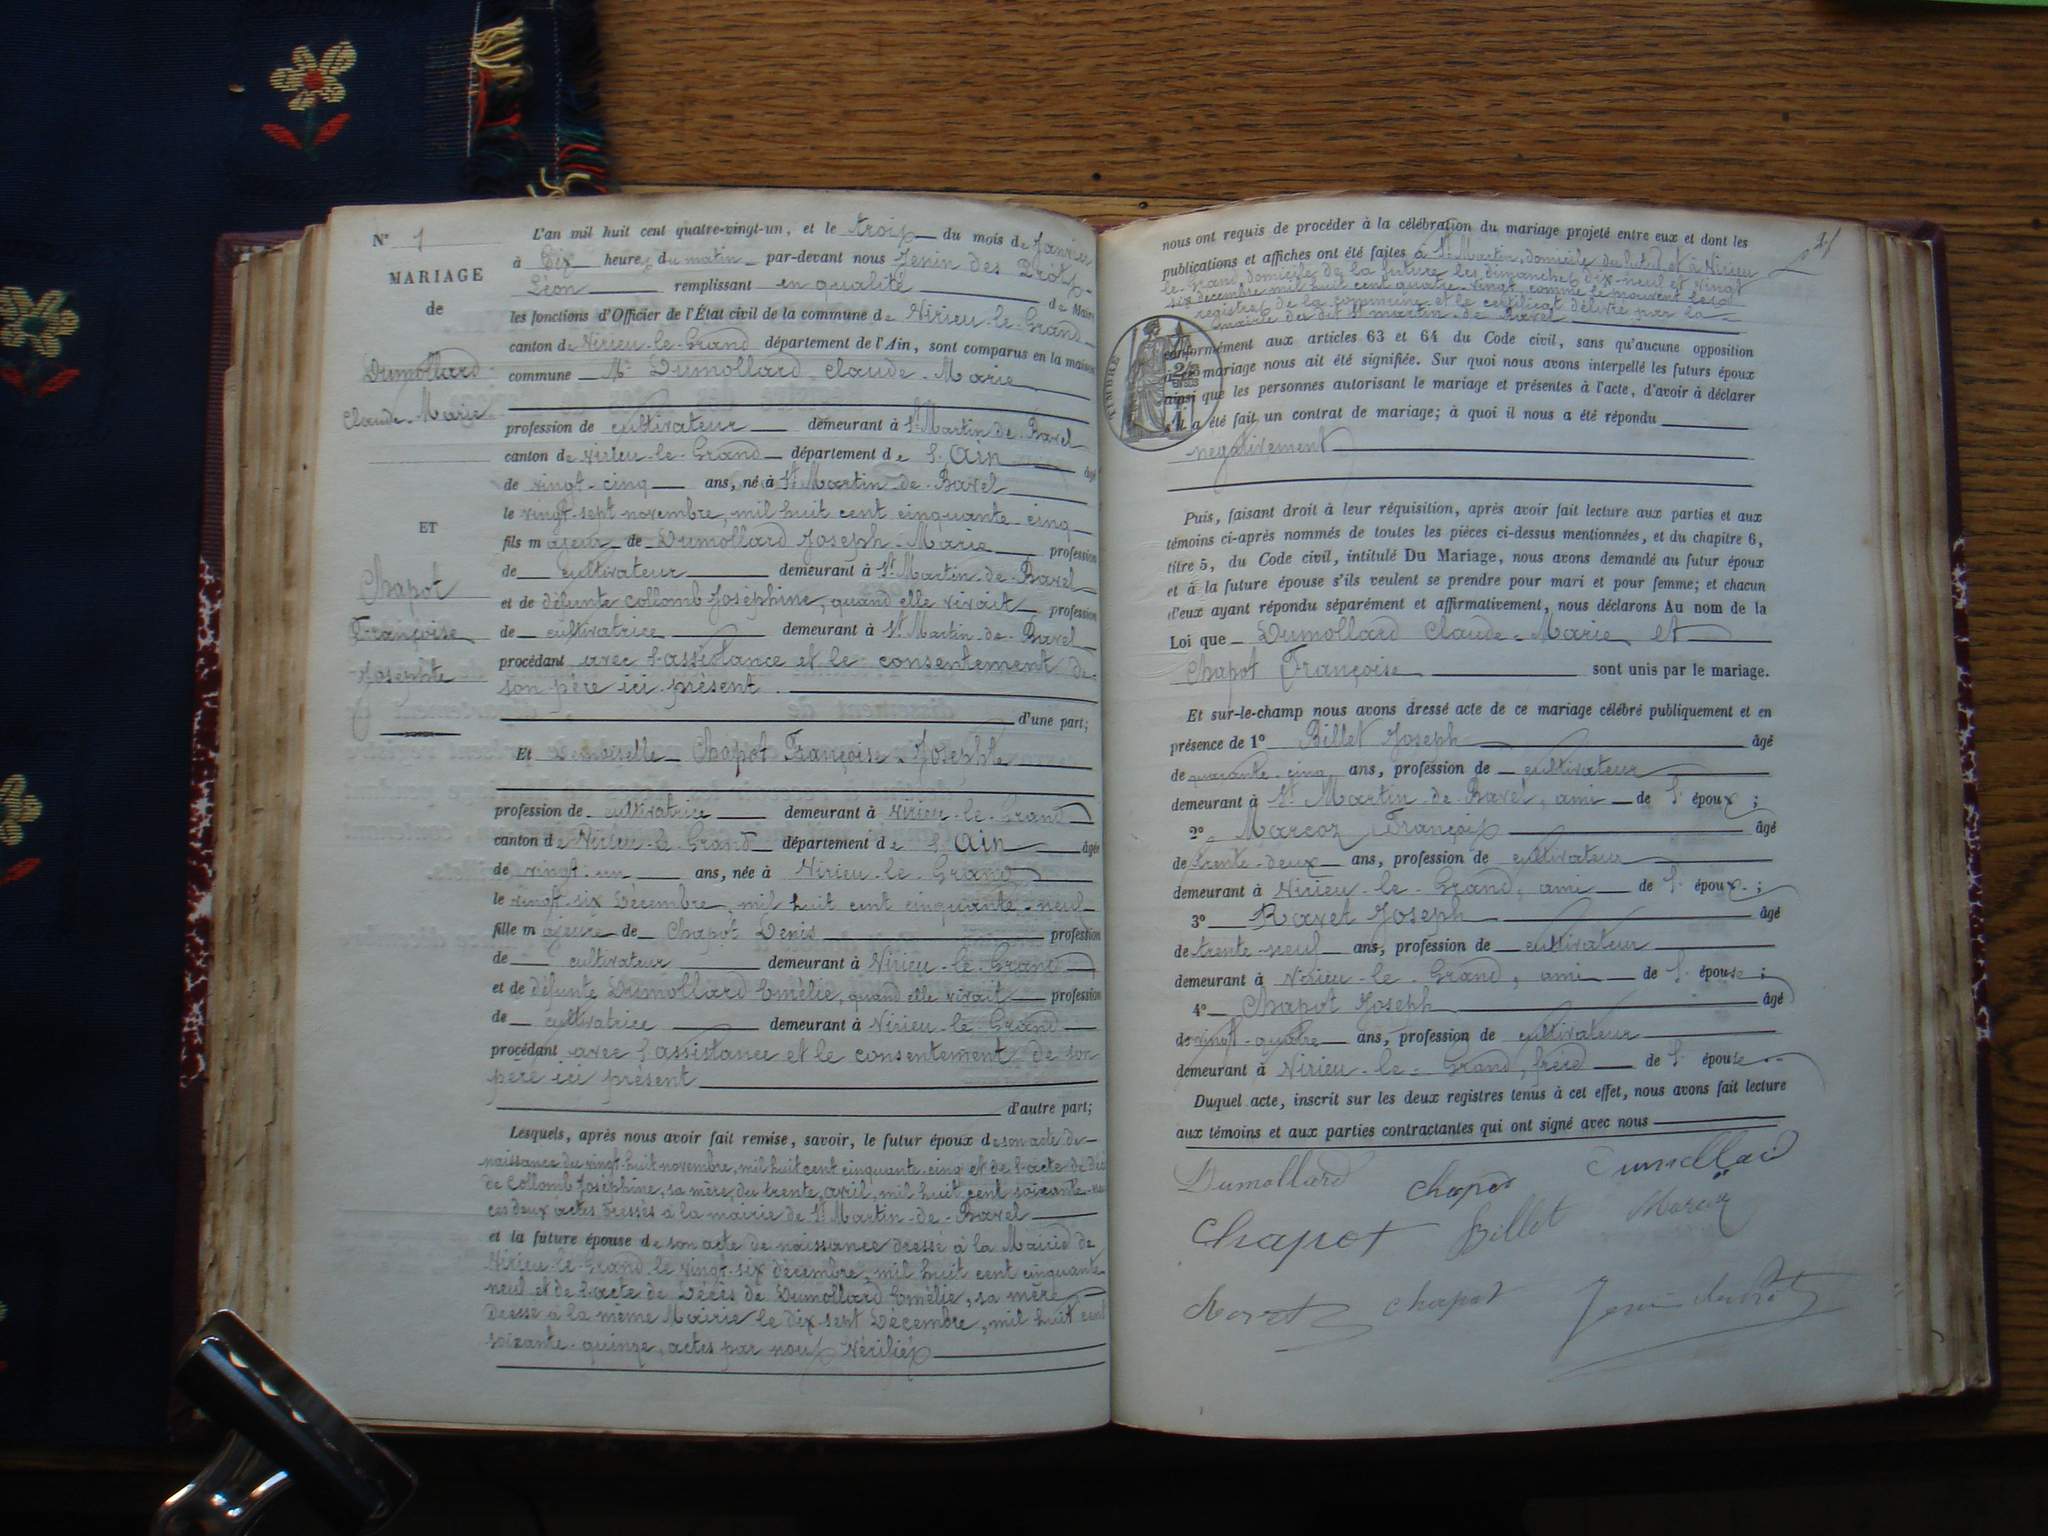 N° 1
MARIAGE
de
Dumollard
Claude-Marie
ET
Chapot
Françoise
Josephte
L'an mil huit cent quatre-vingt-un, et le trois du mois de Janvier
à Dix heures du matin par-devant nous Jenin des Prôts
Léon remplissant en qualité de Maire
les fonctions d'Officier de l'État civil de la commune de Virieu-le-Grand
canton de Virieu-le-Grand département de l'Ain, sont comparus en la maison
commune Mr Dumollard Claude-Marie
profession de cultivateur demeurant à St Martin-de-Bavel
canton de Virieu-le-Grand département de l'Ain âgé
de vingt-cinq ans, né à St Martin-de-Bavel
le vingt-sept novembre, mil huit cent cinquante-cinq
fils majeur de Dumollard Joseph-Marie profession
de cultivateur demeurant à St Martin-de-Bavel
et de défunte Collomb Joséphine, quand elle vivait profession
de cultivatrice demeurant à St Martin-de-Bavel
procédant avec l'assistance et le consentement de
son père ici présent
d'une part;
Et Demoiselle Chapot Françoise Josephte
profession de cultivatrice demeurant à Virieu-le-Grand
canton de Virieu-le-Grand département de l'Ain âgée
de vingt-un ans, née à Virieu-le-Grand
le vingt-six Décembre, mil huit cent cinquante-neuf
fille majeure de Chapot Denis profession
de cultivateur demeurant à Virieu-le-Grand
et de défunte Dumollard Emélie, quand elle vivait profession
de cultivatrice demeurant à Virieu-le-Grand
procédant avec l'assistance et le consentement de son
père ici présent
d'autre part;
Lesquels, après nous avoir fait remise, savoir, le futur époux de son acte de
naissance du vingt-huit novembre, mil huit cent cinquante-cinq et de l'acte de
de Collomb Joséphine, sa mère, du trente avril, mil huit cent soixante-
ces deux actes dressés à la mairie de St Martin-de-Bavel
et la future épouse de son acte de naissance dressé à la Mairie de
Virieu-le-Grand le vingt-six décembre, mil huit cent cinquante-
neuf et de l'acte de Décès de Dumollard Emélie, sa mère
Dressé à la même Mairie le dix-sept Décembre, mil huit cent
soixante-quinze, actes par nous Vérifiés
nous ont requis de procéder à la célébration du mariage projeté entre eux et dont les
publications et affiches ont été faites à St Martin, domicile du futur et à Virieu
le-Grand domicile de la future les dimanches dix-neuf et vingt
six décembre mil huit cent quatre-vingt comme le prouvent les
registres de la commune et le certificat délivré par la
mairie du dit St Martin-de-Bavel
TIMBRE
conformément aux articles 63 et 64 du Code civil, sans qu'aucune opposition
à ce mariage nous ait été signifiée. Sur quoi nous avons interpellé les futurs époux
ainsi que les personnes autorisant le mariage et présentes à l'acte, d'avoir à déclarer
s'il a été fait un contrat de mariage; à quoi il nous a été répondu
négativement
Puis, faisant droit à leur réquisition, après avoir fait lecture aux parties et aux
témoins ci-après nommés de toutes les pièces ci-dessus mentionnées, et du chapitre 6,
titre 5, du Code civil, intitulé Du Mariage, nous avons demandé au futur époux
et à la future épouse s'ils veulent se prendre pour mari et pour femme; et chacun
d'eux ayant répondu séparément et affirmativement, nous déclarons Au nom de la
Loi que Dumollard Claude-Marie et
Chapot Françoise sont unis par le mariage.
Et sur-le-champ nous avons dressé acte de ce mariage célébré publiquement et en
présence de 1° Billet Joseph âgé
de quarante-cinq ans, profession de cultivateur
demeurant à St Martin-de-Bavel, ami de l'époux;
2° Marcoz François âgé
de trente-deux ans, profession de cultivateur
demeurant à Virieu-le-Grand, ami de l'époux;
3° Ravet Joseph âgé
de trente-neuf ans, profession de cultivateur
demeurant à Virieu-le-Grand, ami de l'épouse;
4° Chapot Joseph âgé
de vingt-quatre ans, profession de cultivateur
demeurant à Virieu-le-Grand, frère de l'épouse
Duquel acte, inscrit sur les deux registres tenus à cet effet, nous avons fait lecture
aux témoins et aux parties contractantes qui ont signé avec nous
Dumollard Chapot Dumollard
Chapot Billet Marcoz
Ravet Chapot Jenin des Prôts